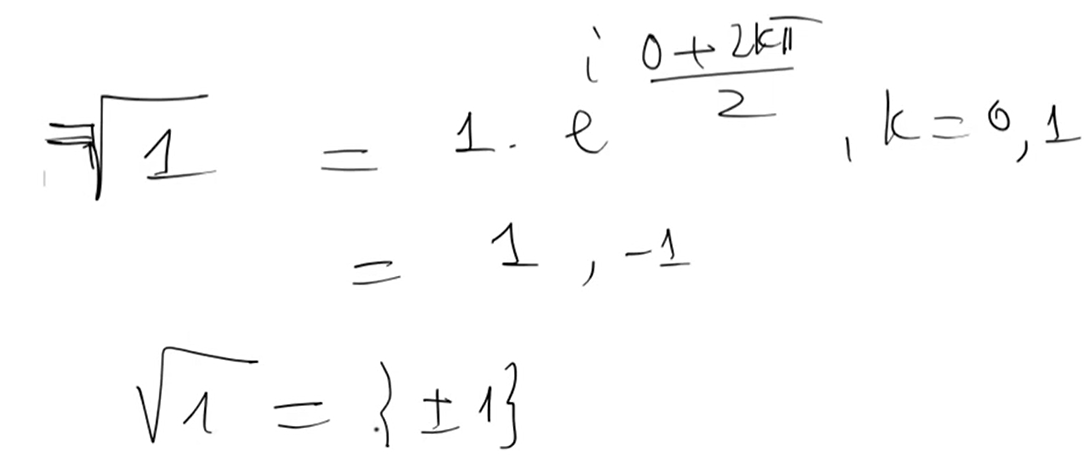 = √1 = 1. e^{i (0+2kπ)/2} , k = 0, 1
= 1 , -1
√1 = {± 1}